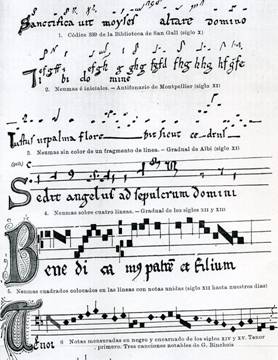 Sanctificavit moyses altare domino
1. Códice 339 de la Biblioteca de San Gall (siglo X)
Ti bi do mine
2. Neumas é iniciales. - Antifonario de Montpellier (siglo XI)
Iustus ut palma flore bit sicut cedrus
3. Neumas sin color de un fragmento de línea. - Gradual de Albi (siglo XI)
Sedit angelus ad sepulcrum domini
4. Neumas sobre cuatro líneas. - Gradual de los siglos XII y XIII
Bene di ca mus patrem et filium
5. Neumas cuadrados colocados en las líneas con notas unidas (siglo XIII hasta nuestros días)
Tenor
6 Notas mensuradas en negro y encarnado de los siglos XIV y XV. Tenor
primero. Tres canciones notables de G. Binchois